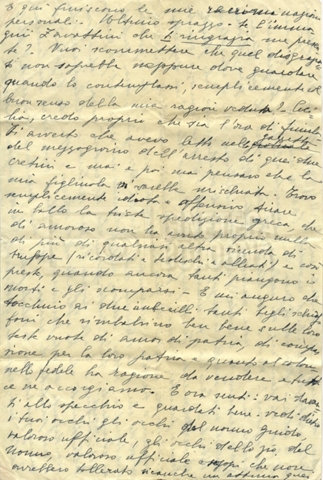 e qui finiscono le mie ragioni
personali. Ultimo sprazzo. Te l'imma
gini Zavattini che ti ringrazia
te?. Vuoi scommettere che quel disgraziato
ti non saprebbe neppure dove guardare
quando lo contemplassi, semplicemente al
buon senso della mia ragioni
credo proprio che sia l'ora di finirla
Ti avverto che avevo letto nella gazzetta
del mezzogiorno dell'arresto di quei due
cretini e mai e poi mai pensavo che la
mia figliuola si sarebbe mischiata. Trovo
semplicemente idiota e offensivo tirare
in ballo la triste spedizione greca che
di amoroso non ha avuto proprio nulla
di più di qualsiasi altra ricevuta di
truppe (ricordati i tedeschi e alleati) e così
presto, quando ancora tanti piangono i
morti e gli scomparsi - E mi auguro che
tocchino ai due imbecilli tanti begli schiaf
foni che rimbalzino ben bene sulle loro
teste vuote di amor di patria, di compas
sione per la loro patria e quando al colon
nello fedele ha ragione da vendere e tutti
ce ne accorgiamo. E ora senti: vai davan
ti allo specchio e guardati bene. Vedi dietro
i tuoi occhi gli occhi del nonno Guido,
valoroso ufficiale, gli occhi dello zio, del
nonno, valoroso ufficiale e sappi che non
avrebbero tollerato neanche un attimo quei